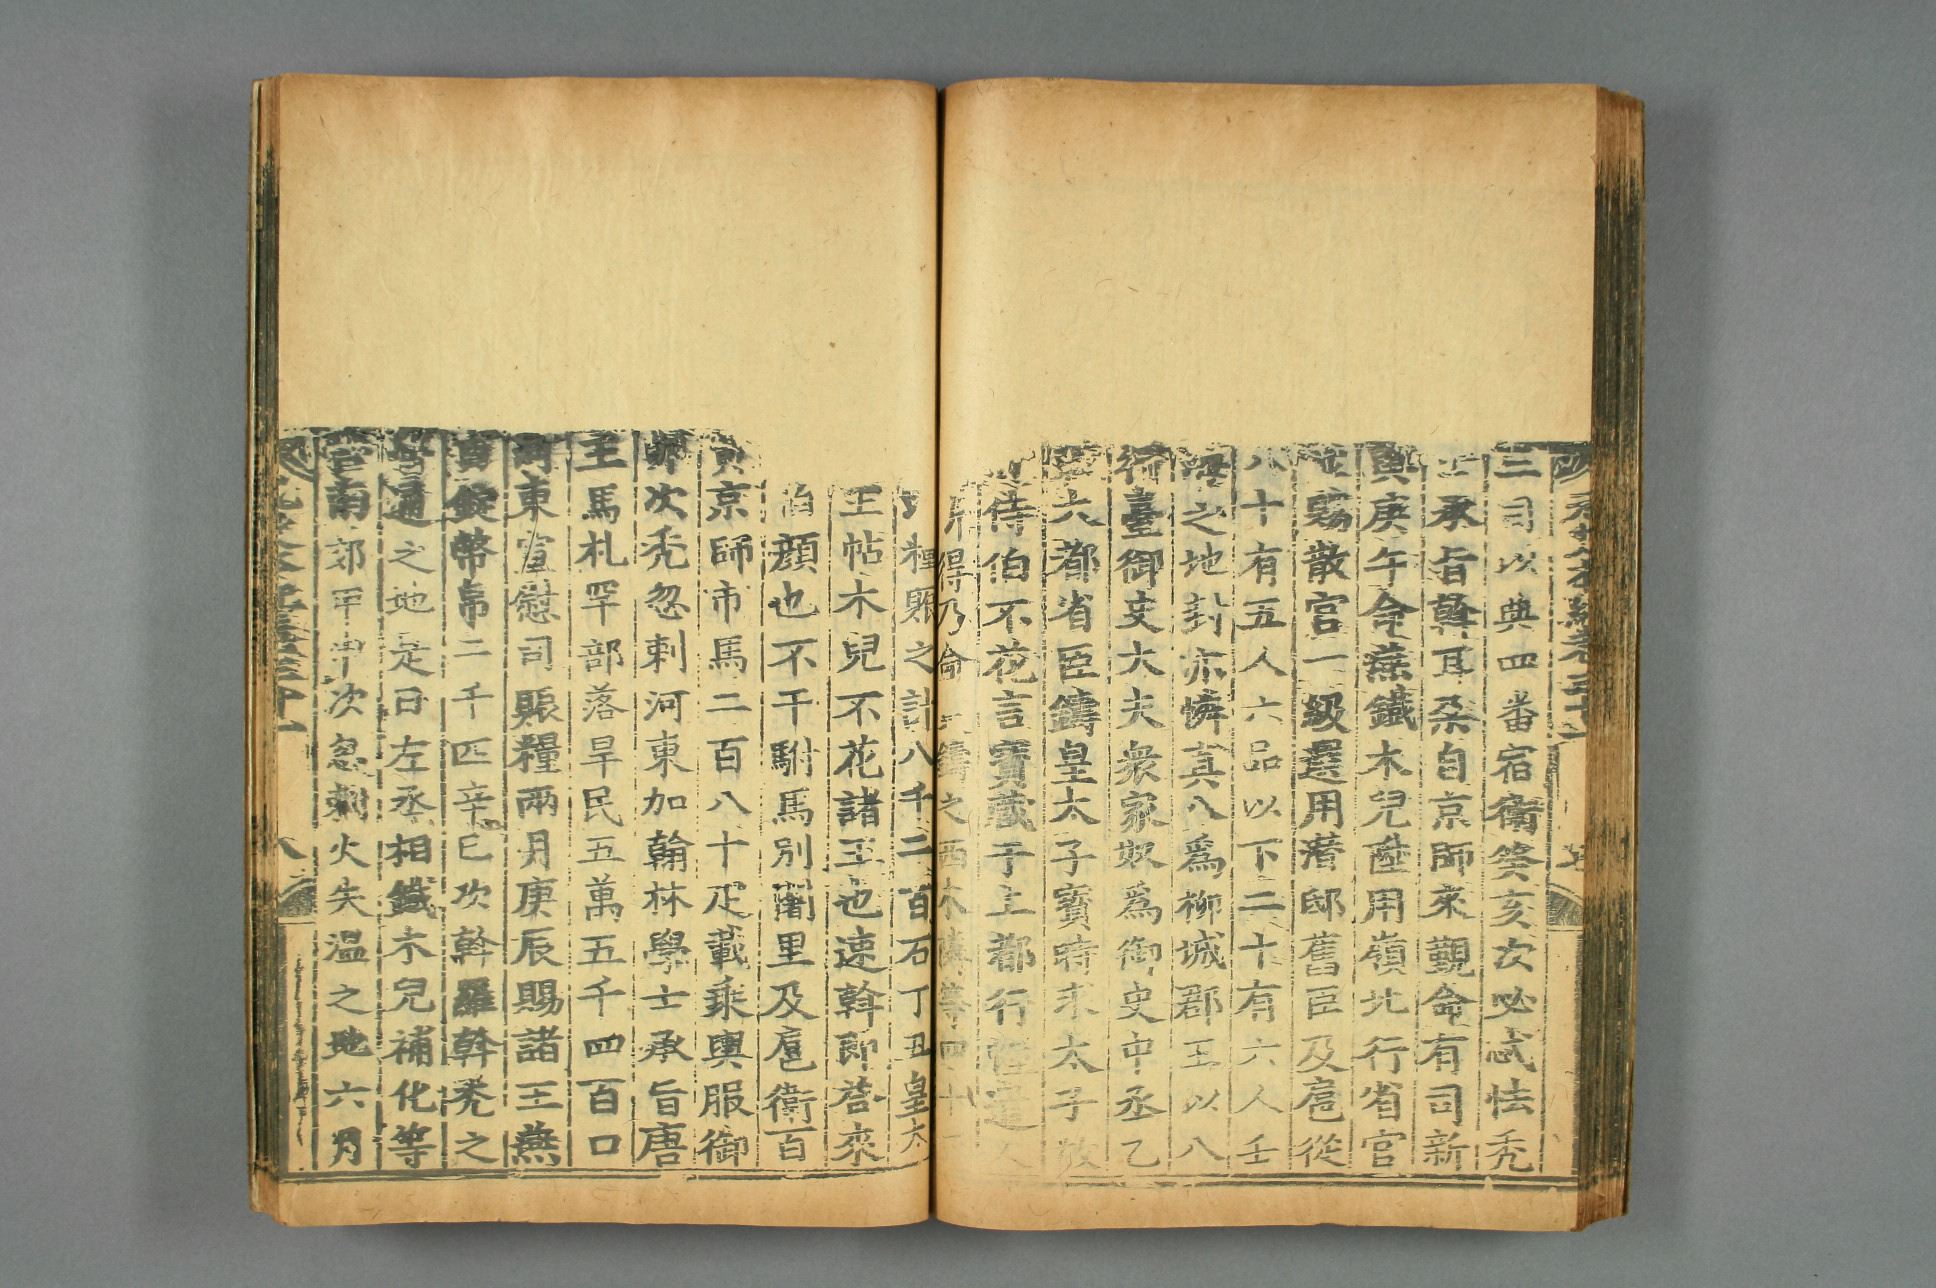 三司以與四番宿衛癸亥次必忒怯禿
承旨斡耳朵自京師來覲命有司新
庚午命燕鐵木兒陞用嶺北行省官
賜散官一級選用潛邸舊臣及扈從
八十有五人六品以下二十有六人壬
之地封亦憐真八爲柳城郡王以八
行臺御史大夫衆家奴爲御史中丞乙
六都省臣鑄皇太子寶時求太子
侍伯不花言寶藏于上都行幄
得乃命 鑄之西木隣等四十
糧賑之計八千二百石丁丑皇太
王帖木兒不花諸王也速斡即荅來
伯顏也不干駙馬別闍里及扈衛百
寅京師市馬二百八十疋載乘輿服御
卯次禿忽剌河東加翰林學士承旨唐
王馬札罕部落旱民五萬五千四百口
河東宣慰司賑糧兩月庚辰賜諸王燕
賁錠幣帛二千匹辛巳次斡羅斡禿之
普通之地是日左丞相鐵木兒補化等
宮南郊甲申次忽剌火失溫之地六月
元史本紀卷三十一